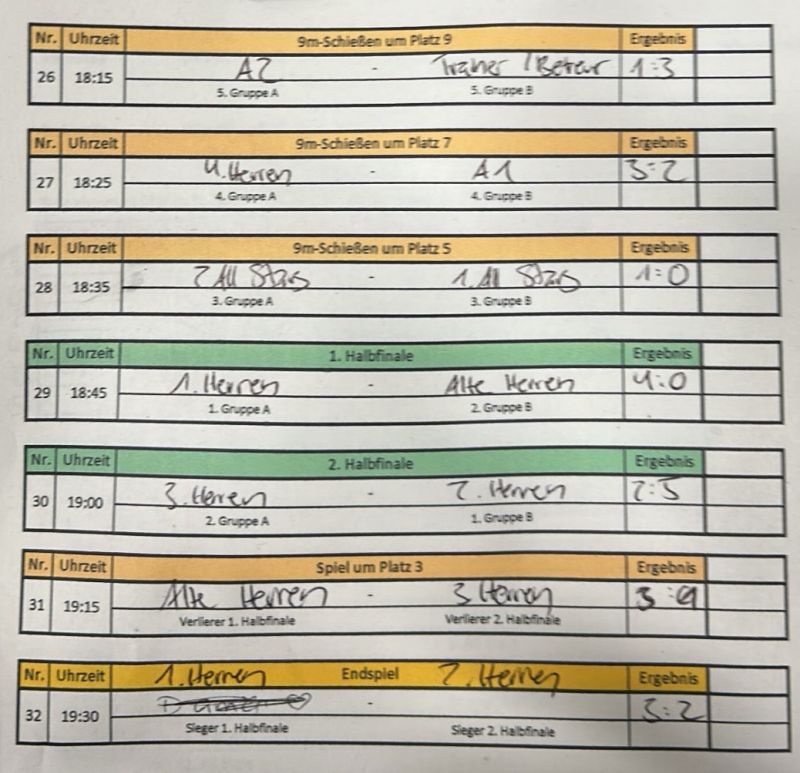 Nr. Uhrzeit 9m-Schießen um Platz 9 Ergebnis
26 18:15 A2 - Trainer / Betreur 1:3
5. Gruppe A 5. Gruppe B
Nr. Uhrzeit 9m-Schießen um Platz 7 Ergebnis
27 18:25 4. Herren - A1 3:2
4. Gruppe A 4. Gruppe B
Nr. Uhrzeit 9m-Schießen um Platz 5 Ergebnis
28 18:35 2 All Stars - 1. All Stars 1:0
3. Gruppe A 3. Gruppe B
Nr. Uhrzeit 1. Halbfinale Ergebnis
29 18:45 1. Herren - Alte Herren 4:0
1. Gruppe A 2. Gruppe B
Nr. Uhrzeit 2. Halbfinale Ergebnis
30 19:00 3. Herren - 2. Herren 2:5
2. Gruppe A 1. Gruppe B
Nr. Uhrzeit Spiel um Platz 3 Ergebnis
31 19:15 Alte Herren - 3 Herren
Verlierer 1. Halbfinale Verlierer 2. Halbfinale
Nr. Uhrzeit 1. Herren Endspiel 2. Herren Ergebnis
32 19:30 - 3:2
Sieger 1. Halbfinale Sieger 2. Halbfinale